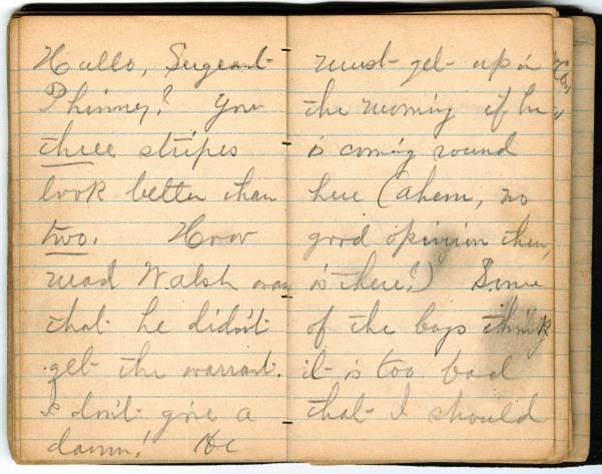 Hullo, Sergeant
Phinney! Your
three stripes
look better than
two. How
mad Walsh was
that he didn't
get the warrant.
I don't give a
damn! He
must get up in
the morning if he
is coming round
here (ahem, no
good opinion then,
is there!) Some
of the boys think
it is too bad
that I should